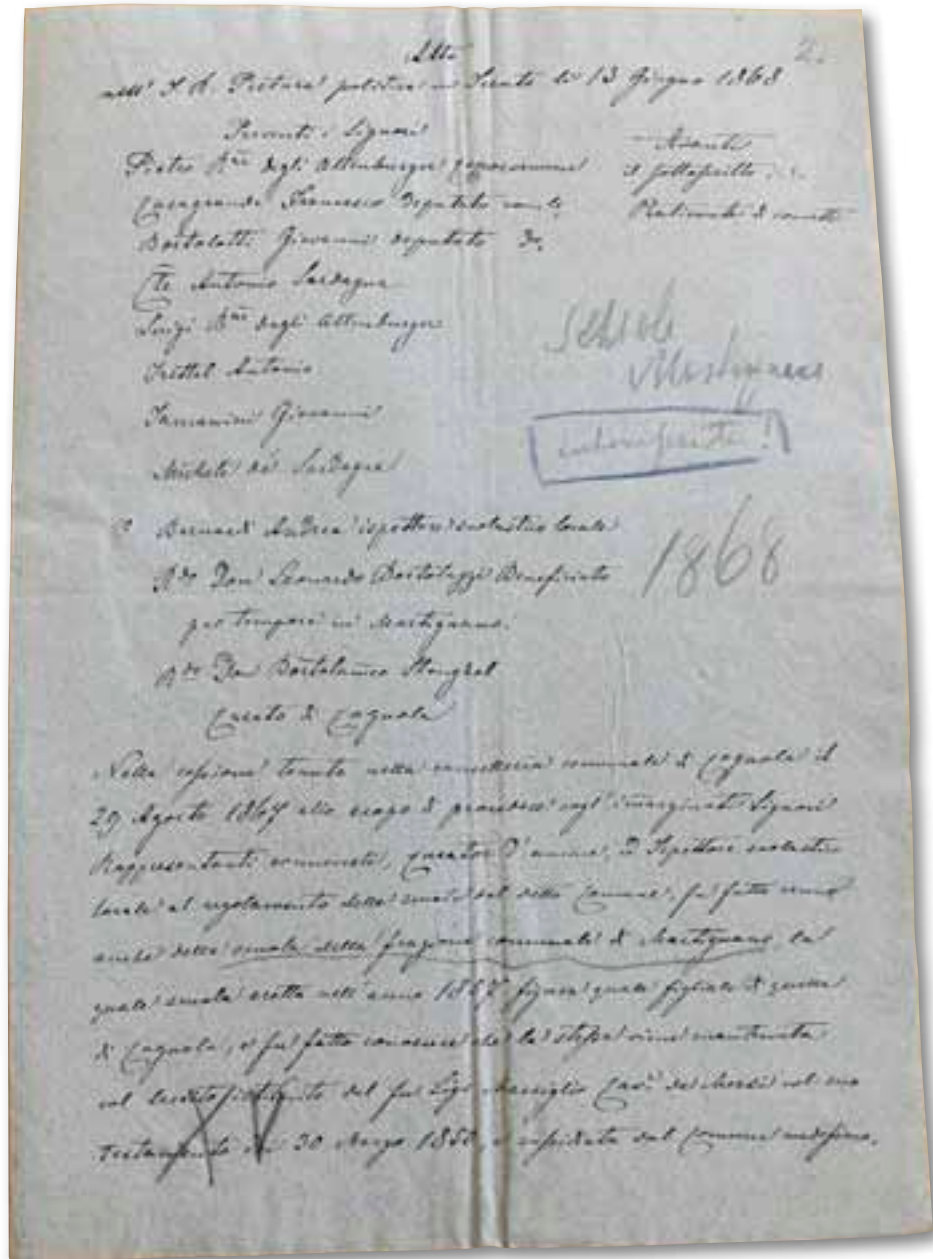 Atto 2.
nell' I. R. Pretura politica in Trento li 13 Giugno 1868
Presenti i Signori
Avanti
Pietro Bne degli Altenburger Capocomune
il sottoscritto
Casagranda Francesco Deputato com.le
Bortolotti Giovanni deputato do.
Cte Antonio Sardagna
Luigi Bne degli Altenburger
Scuole
Martignano
Antonio
Tamanini Giovanni
Michele de' Sardagna
Bernardi Andrea ispettore scolastico locale
1868
Rdo Don Leonardo Bortoluzzi Beneficiato
pro tempore in Martignano.
Rdo Don Bortolameo
Curato di Cognola
Nella sessione tenuta nella cancelleria comunale di Cognola il
29 Agosto 1867 allo scopo di procedere cogl' immarginati Signori
Rappresentanti comunali, Curator d' anime, ed Ispettore scolastico
locale al regolamento delle scuole del detto Comune, fu fatto cenno
anche della scuola della frazione comunale di Martignano, la
quale scuola eretta nell' anno figura quale figliale di quella
di Cognola, e fu fatto conoscere che la stessa viene mantenuta
col lascito del fu Sigr Cavr de col suo
Testamento 30 Marzo dal Comune medesimo.